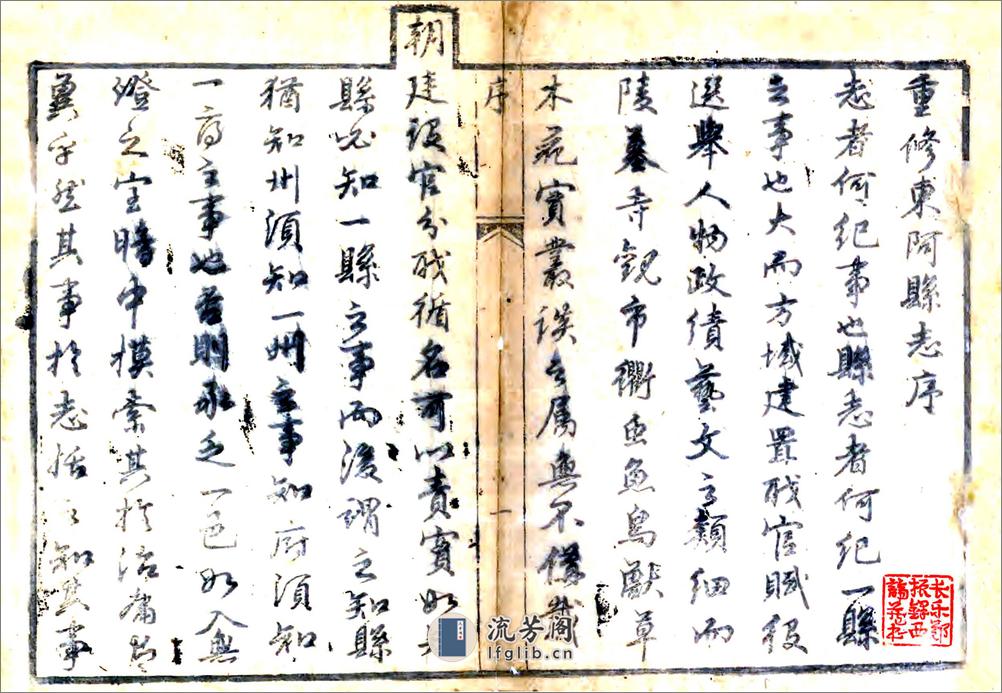 重修東阿縣志序
志者何紀事也縣志者何紀一縣
之事也大而方域建置職官賦役
選舉人物政績藝文之類細而
陵墓寺觀市衢虫魚鳥獸草
木花實叢談之屬無不俱載
序
一
朝
廷設官分職循名可以責實如
縣必知一縣之事而後謂之知縣
猶知州須知一州之事知府須知
一府之事也否則承乏一邑如入無
燈之室暗中摸索其於治庸
冀乎然其事於志括知其事
长乐郑
振铎西
諦藏书
流芳阁
lfglib.cn